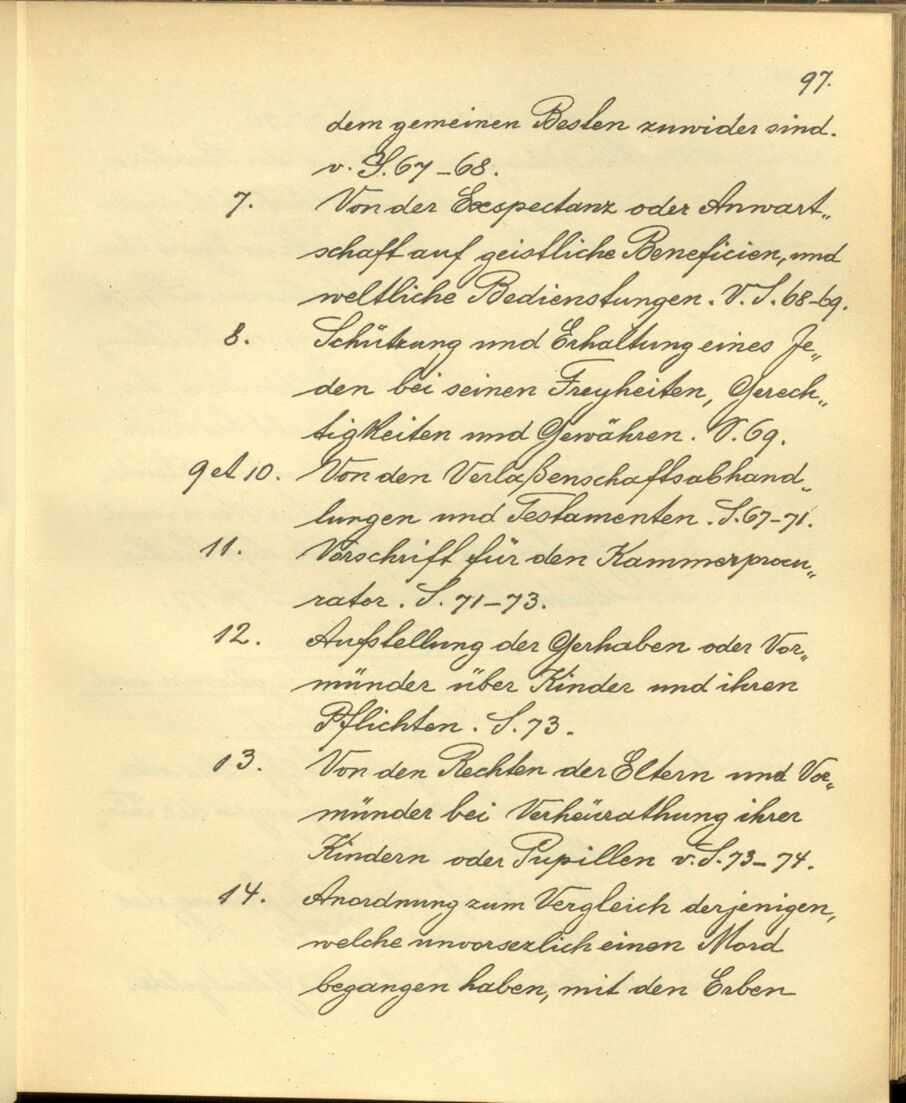 97.
dem gemeinen Besten zuwider sind.
v. S. 67-68.
7. Von der Exspectanz oder Anwart„
schaft auf geistliche Beneficien, und
weltliche Bedienstungen. V. S. 68-69.
8. Schützung und Erhaltung eines Je„
den bei seinen Freyheiten, Gerech„
tigkeiten und Gewähren. V. 69.
9 et 10. Von den Verlaßenschaftsabhand„
lungen und Testamenten. S. 67-71.
11. Vorschrift für den Kammerprocu„
rator. S. 71-73.
12. Aufstellung der Gerhaben oder Vor„
münder über Kinder und ihren
Pflichten. S. 73.
13. Von den Rechten der Eltern und Vor„
münder bei Verheurathung ihrer
Kindern oder Pupillen v. S. 73-74.
14. Anordnung zum Vergleich derjenigen,
welche unvorsezlich einen Mord
begangen haben, mit den Erben